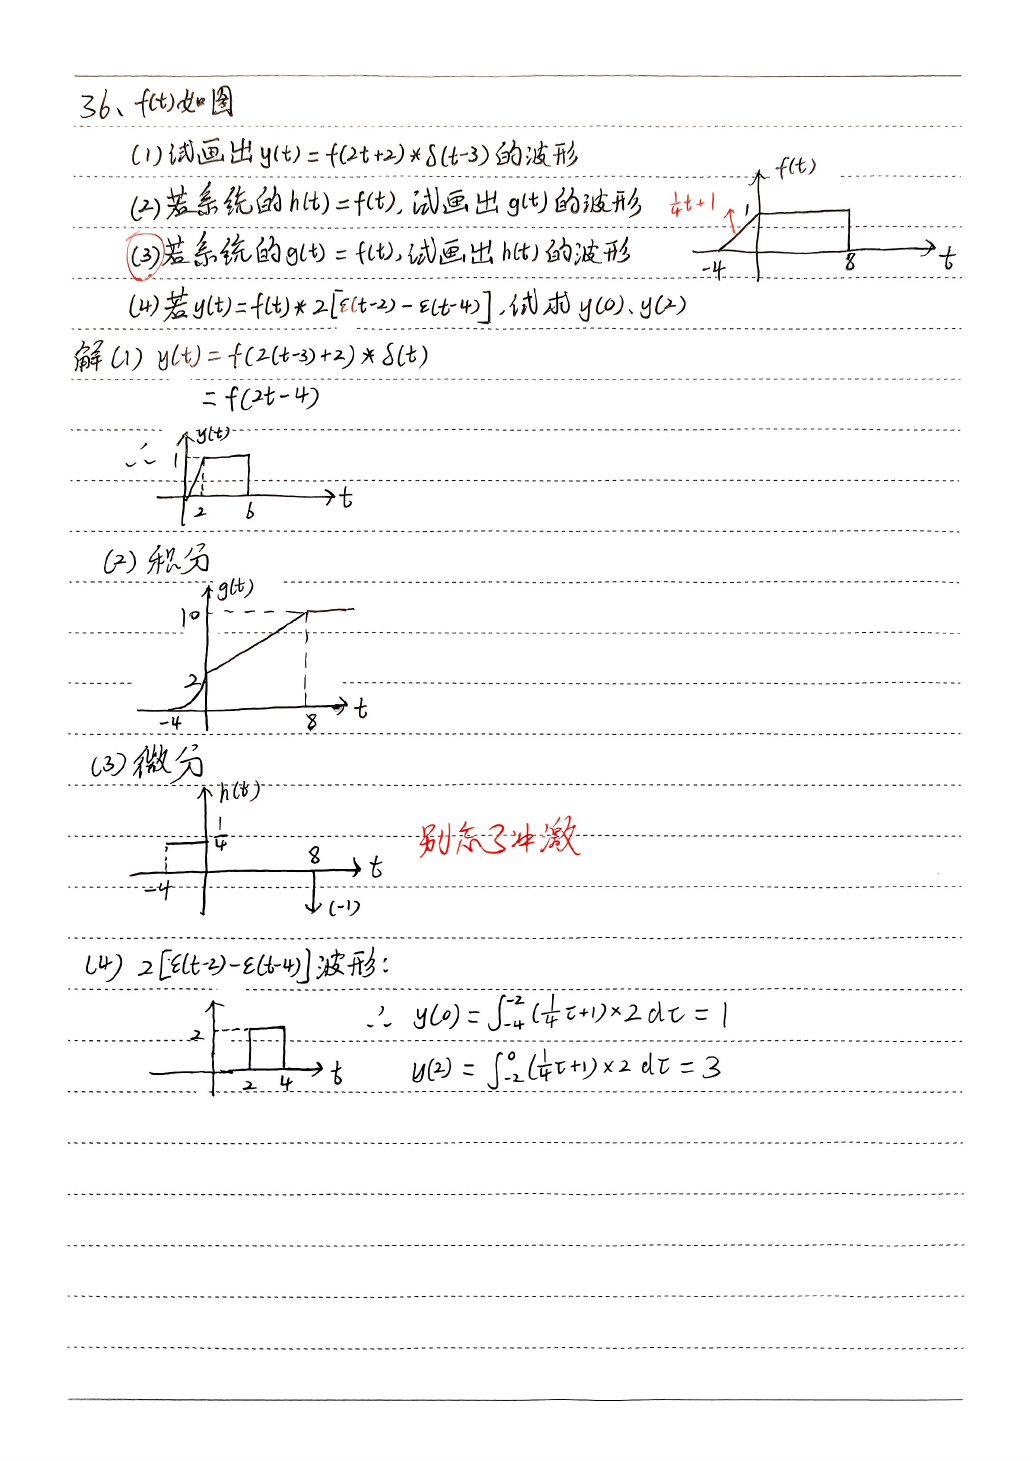 36、f(t)如图
(1)试画出y(t)=f(2t+2)*δ(t-3)的波形
(2)若系统的h(t)=f(t),试画出g(t)的波形
(3)若系统的g(t)=f(t),试画出h(t)的波形
(4)若y(t)=f(t)*2[ε(t-2)-ε(t-4)],试求y(0)、y(2)
f(t)
1/4t+1
1
-4
8
t
解(1) y(t)=f(2(t-3)+2)*δ(t)
=f(2t-4)
∴
y(t)
1
2
6
t
(2) 积分
g(t)
10
2
-4
8
t
(3)微分
h(t)
1/4
8
t
-4
(-1)
别忘了冲激
(4) 2[ε(t-2)-ε(t-4)]波形:
2
2
4
t
∴ y(0)=∫₋₄⁻²(1/4τ+1)×2dτ=1
y(2)=∫₋₂⁰(1/4τ+1)×2dτ=3